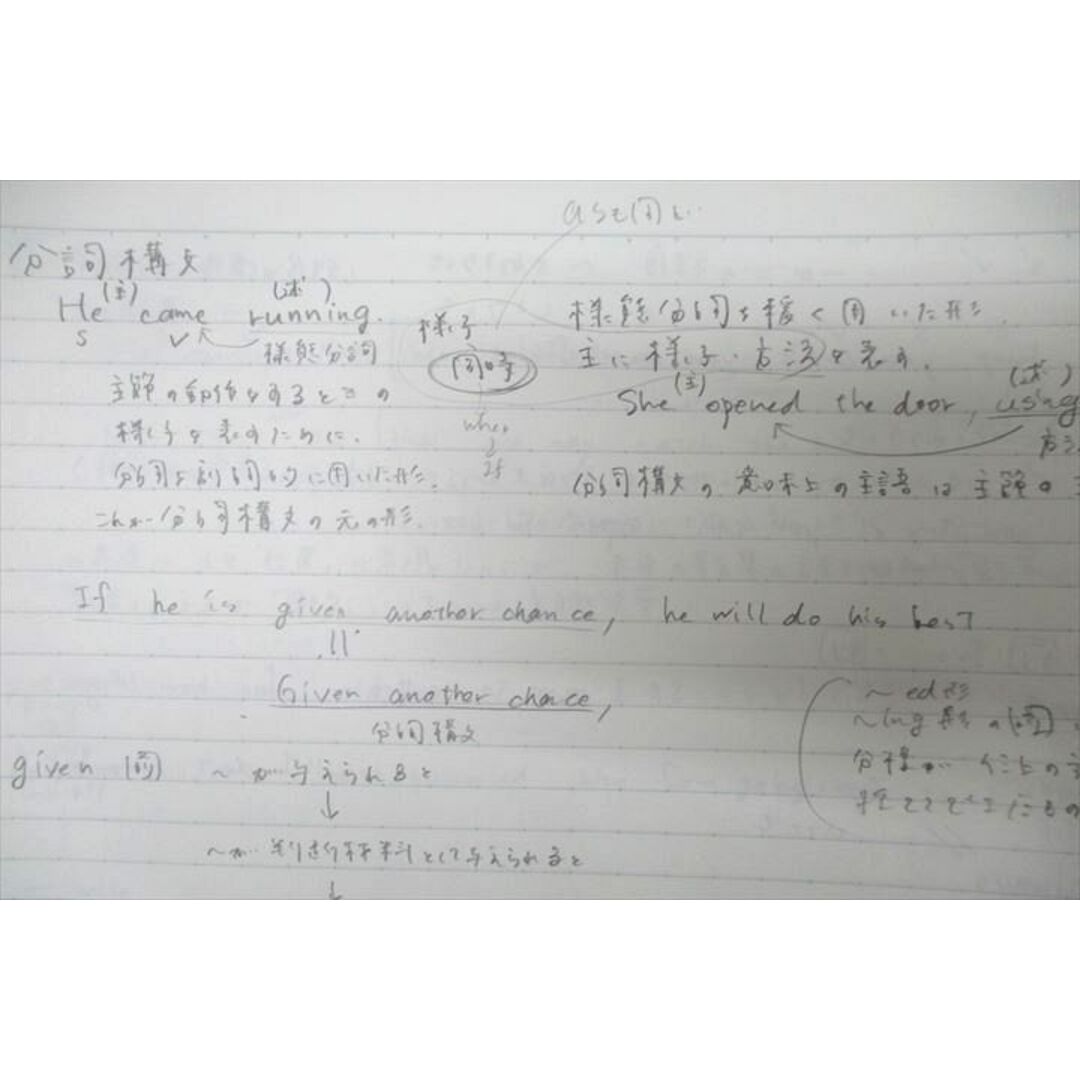 分詞構文
(主) (述)
He came running.
S V 様態分詞
主節の動作をするときの
様子を表すために、
分詞を副詞的に用いた形.
これが分詞構文の元の形.
様子
同時
when
If
as と同じ
様態分詞を緩く用いた形
主に様子・方法を表す.
(主) (述)
She opened the door, using
分詞構文の意味上の主語は主節の
If he is given another chance, he will do his best
Given another chance,
分詞構文
given (前) 〜が与えられると
↓
〜が判断材料として与えられると
↓
〜ed形
〜ing形の